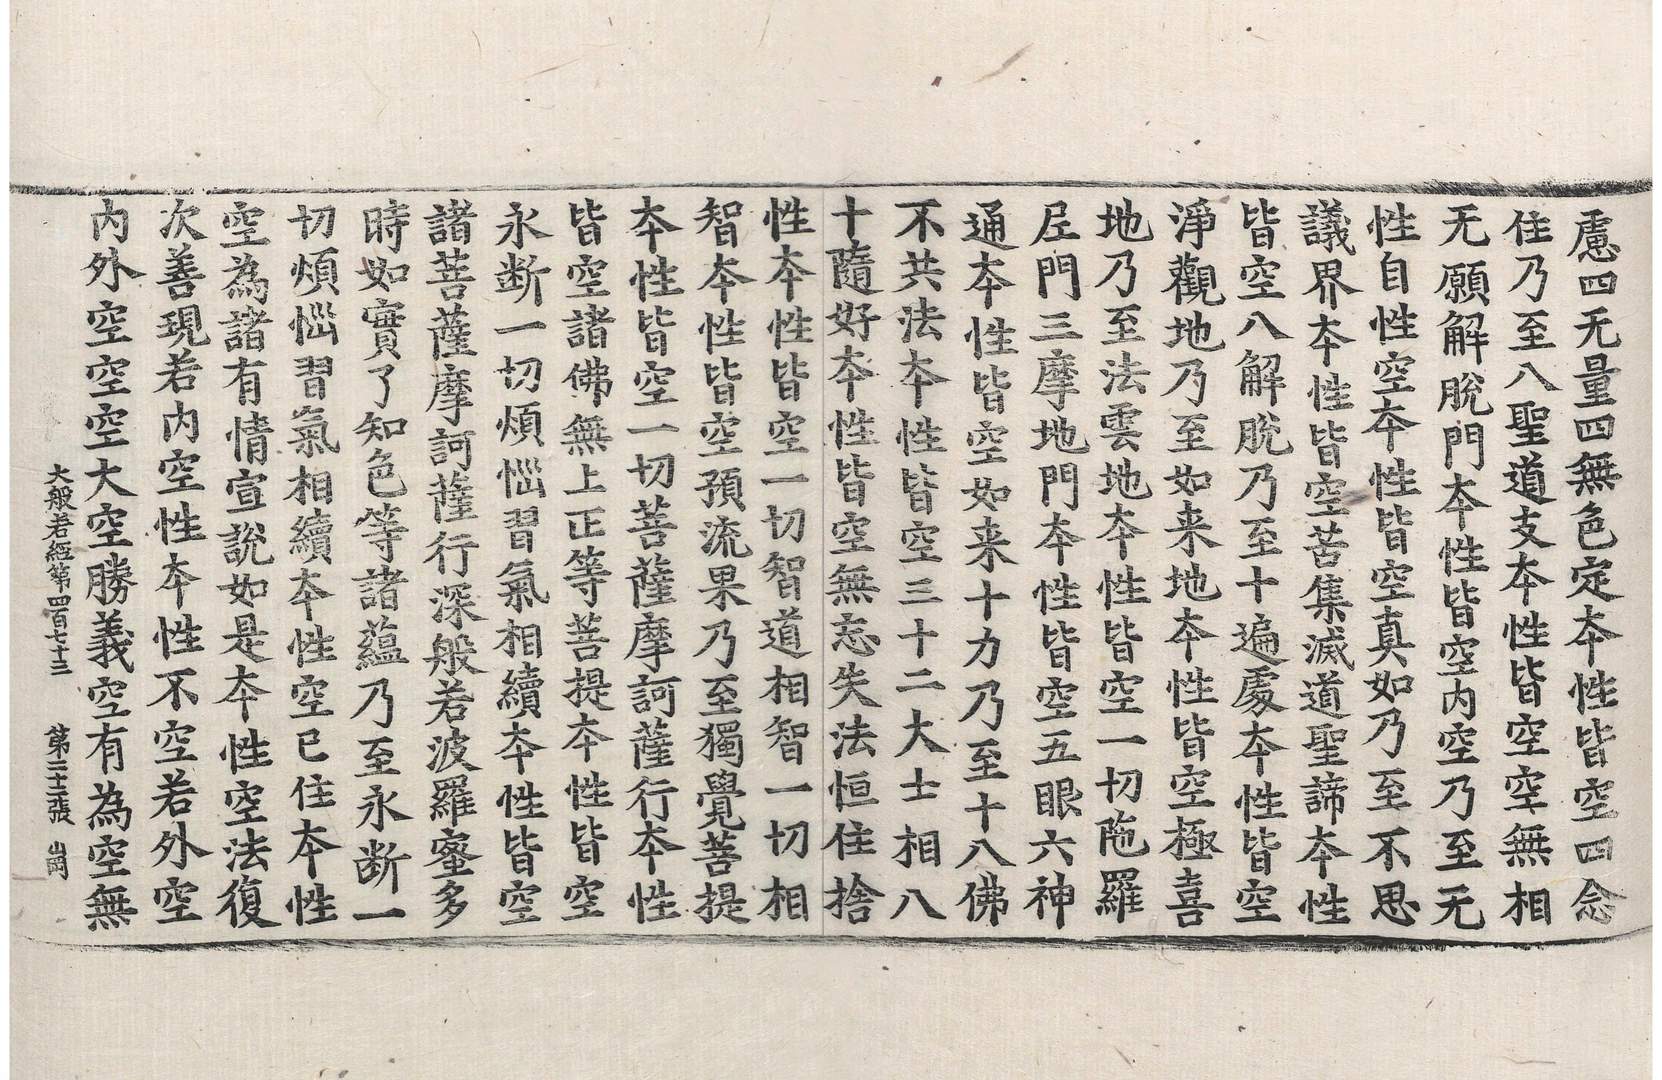 慮四无量四無色定夲性皆空四念
住乃至八聖道支夲性皆空空無相
无願解脫門夲性皆空内空乃至无
性自性空夲性皆空真如乃至不思
議界夲性皆空苦集滅道聖諦夲性
皆空八解脫乃至十遍處夲性皆空
淨觀地乃至如来地夲性皆空極喜
地乃至法雲地夲性皆空一切陁羅
尼門三摩地門夲性皆空五眼六神
通夲性皆空如来十力乃至十八佛
不共法夲性皆空三十二大士相八
十隨好夲性皆空無忘失法恒住捨
性夲性皆空一切智道相智一切相
智夲性皆空預流果乃至獨覺菩提
夲性皆空一切菩薩摩訶薩行夲性
皆空諸佛無上正等菩提夲性皆空
永断一切煩惱習氣相續夲性皆空
諸菩薩摩訶薩行深般若波羅蜜多
時如實了知色等諸蘊乃至永断一
切煩惱習氣相續夲性空已住夲性
空為諸有情宣說如是夲性空法復
次善現若内空性夲性不空若外空
内外空空空大空勝義空有為空無
大般若經第四百七十三 第二十二張 崗